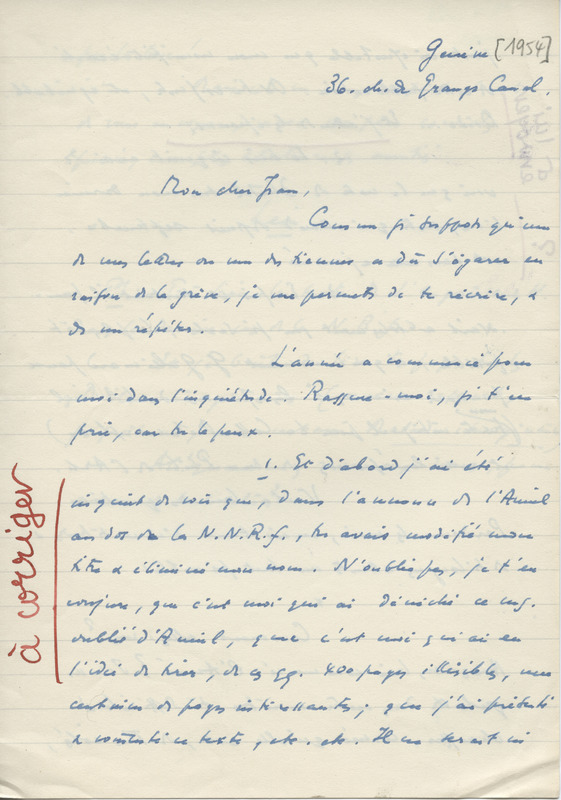 Genève [1954]
36. ch. de Grange Canal.
Mon cher Jean,
Comme je suppose qu'une
de mes lettres ou une des tiennes a dû s'égarer en
raison de la grève, je me permets de te récrire, &
de me répéter.
L'année a commencé pour
moi dans l'inquiétude. Rassure-moi, je t'en
prie, car tu le peux.
1. Et d'abord j'ai été
inquiet de voir que, dans l'annonce de l'Amiel
au dos de la N.N.R.f., tu avais modifié mon
titre & éliminé mon nom. N'oublie pas, je t'en
conjure, que c'est moi qui ai déniché ce
oublié d'Amiel, que c'est moi qui ai eu
l'idée de tirer, de ces qq. 400 pages illisibles, une
centaine de pages intéressantes; que j'ai présenté
& commenté ce texte, etc. etc. Il ne serait ni
à corriger